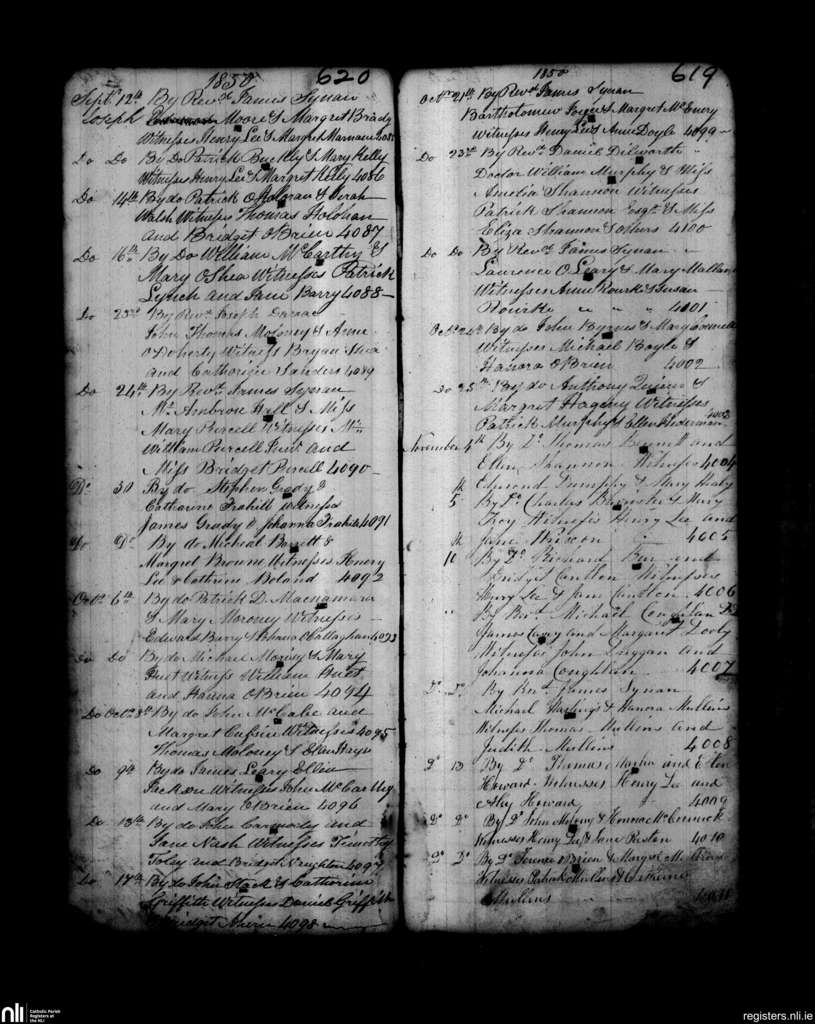 1850 620
Septr 12th By Revd James Synan
Joseph Moore & Margret Brady
Witnesses Henry Lee & Margret Marnane 4085
Do Do By Do Patrick Buckley & Mary Kelly
Witnesses Henry Lee & Margret Kelly 4086
Do 14th By do Patrick & Sarah
Walsh Witness Thomas Holohan
and Bridget OBrien 4087
Do 16th By Do William McCarthy &
Mary OShea Witnesses Patrick
Lynch and Jane Barry 4088
Do 23rd By Revd Joseph
John Thomas Moloney & Anne
ODoherty Witness Bryan Shea
and Catherine Sanders 4089
Do 24th By Revd James Synan
Mr Ambrose Hall & Miss
Mary Purcell Witnesses Mr
William Purcell Junr and
Miss Bridget Purcell 4090
Do 30 By do Stephen Grady &
Catharine Frahill witnesses
James Grady & Johanna Frahill 4091
Do Do By do Micheal Barrett &
Margret Browne Witnesses Henery
Lee & Cathrine Boland 4092
Octr 6th By do Patrick D. Macnamara
& Mary Moroney Witnesses
Edward Barry & Johanna OCallaghan 4093
Do Do By do Michael & Mary
Witness William
and Hanna OBrien 4094
Do Octr 8th By do John McCabe and
Margret Witnesses 4095
Thomas Moloney & Ellen Hayes
Do 9th By do James Leary Ellen
Jackson Witnesses John McCarthy
and Mary OBrien 4096
Do 13th By do John Carmody and
Jane Nash Witnesses Timothy
Foley and Bridget Naughton 4097
Do 17th By do John Stack & Catherine
Griffith Witnesses Daniel Griffith
Bridget 4098
1850 619
Octr 21st By Revd James Synan
Bartholomew Joyce & Margret McEnery
Witnesses Henry Lee & Anne Doyle 4099
Do 23rd By Revd Daniel Dilworth
Doctor William Murphy & Miss
Amelia Shannon Witnesses
Patrick Shannon Esqr & Miss
Eliza Shannon & others 4100
Do Do By Revd James Synan
Laurence OLeary & Mary Mallane
Witnesses Anne Rourke & Susan
Rourke " " " 4001
Octr 24th By do John Byrnes & Mary Connell
Witnesses Michael Boyle &
Hanora OBrien 4002
Do 25th By do Anthony Quinn &
Margret Hagerty Witnesses
Patrick Murphy & Ellen Hederman 4003
November 4th By Do Thomas Bennett and
Ellen Shannon Witnesses 4004
Edmond Dunphy & Mary Healy
5 By Do Charles & Mary
Troy Witnesses Henry Lee and
Jane Preston 4005
10 By Do Richard and
Bridget Cantlon Witnesses
Henry Lee & Jane Cantlon 4006
" By Revd Michael Coughlan PP
James Casey and Margaret Dooly
Witnesses John Duggan and
Johanna Coughlan 4007
Do Do By Revd James Synan
Michael Hastings & Hanora Mullins
Witness Thomas Mullins and
Judith Mullins 4008
Do 13 By Do Thomas and Ellen
Howard Witnesses Henry Lee and
Howard 4009
Do Do By Do John Molony & Honora McCormick
Witnesses Henry Lee & Jane Preston 4010
Do Do By Do Terence OBrien & Margret
Witnesses Patrick Mullins & Catharine
Mullins 4011
nli Catholic Parish
Registers at
the NLI
registers.nli.ie